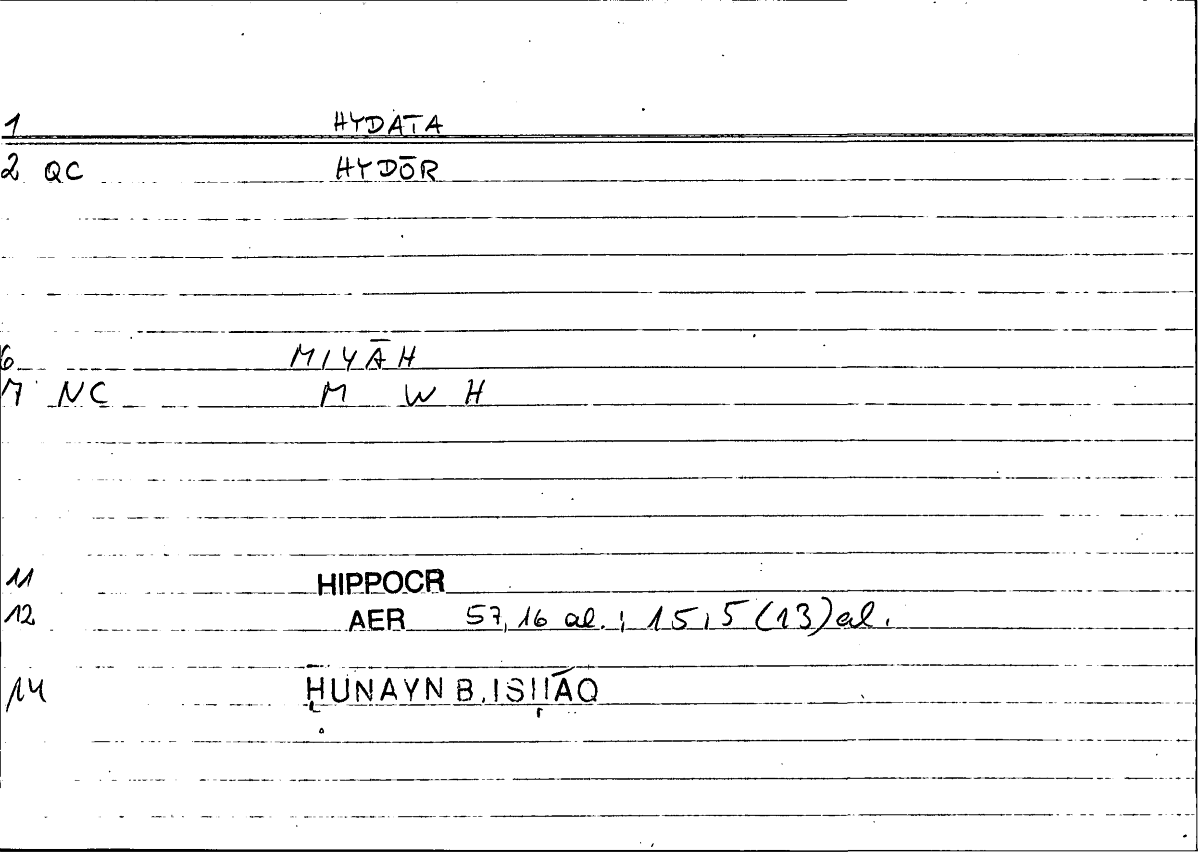 1 HYDATA
2 QC HYDŌR
6 MIYĀH
7 NC M W H
11 HIPPOCR
12 AER 57,16 al.; 15,5 (13) al.
14 ḤUNAYN B. ISḤĀQ